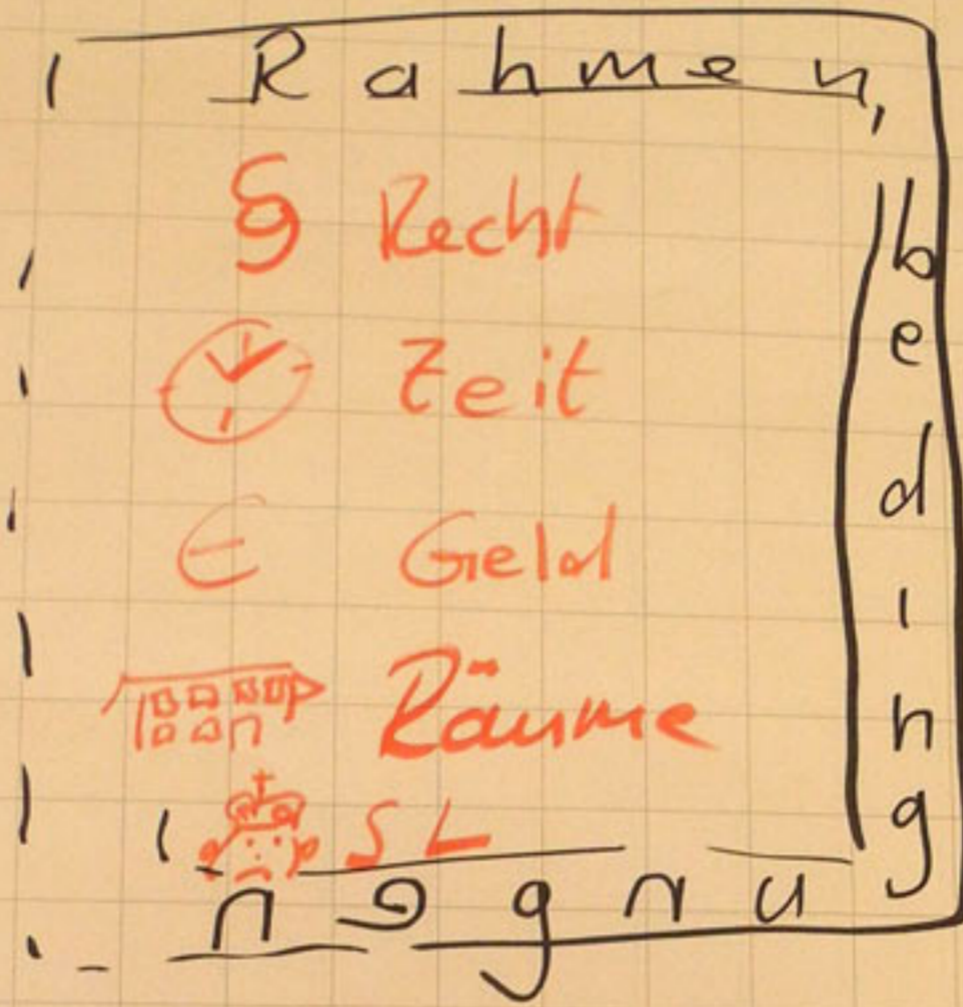 Rahmen
beding
ungen
§ Recht
Zeit
€ Geld
Räume
SL